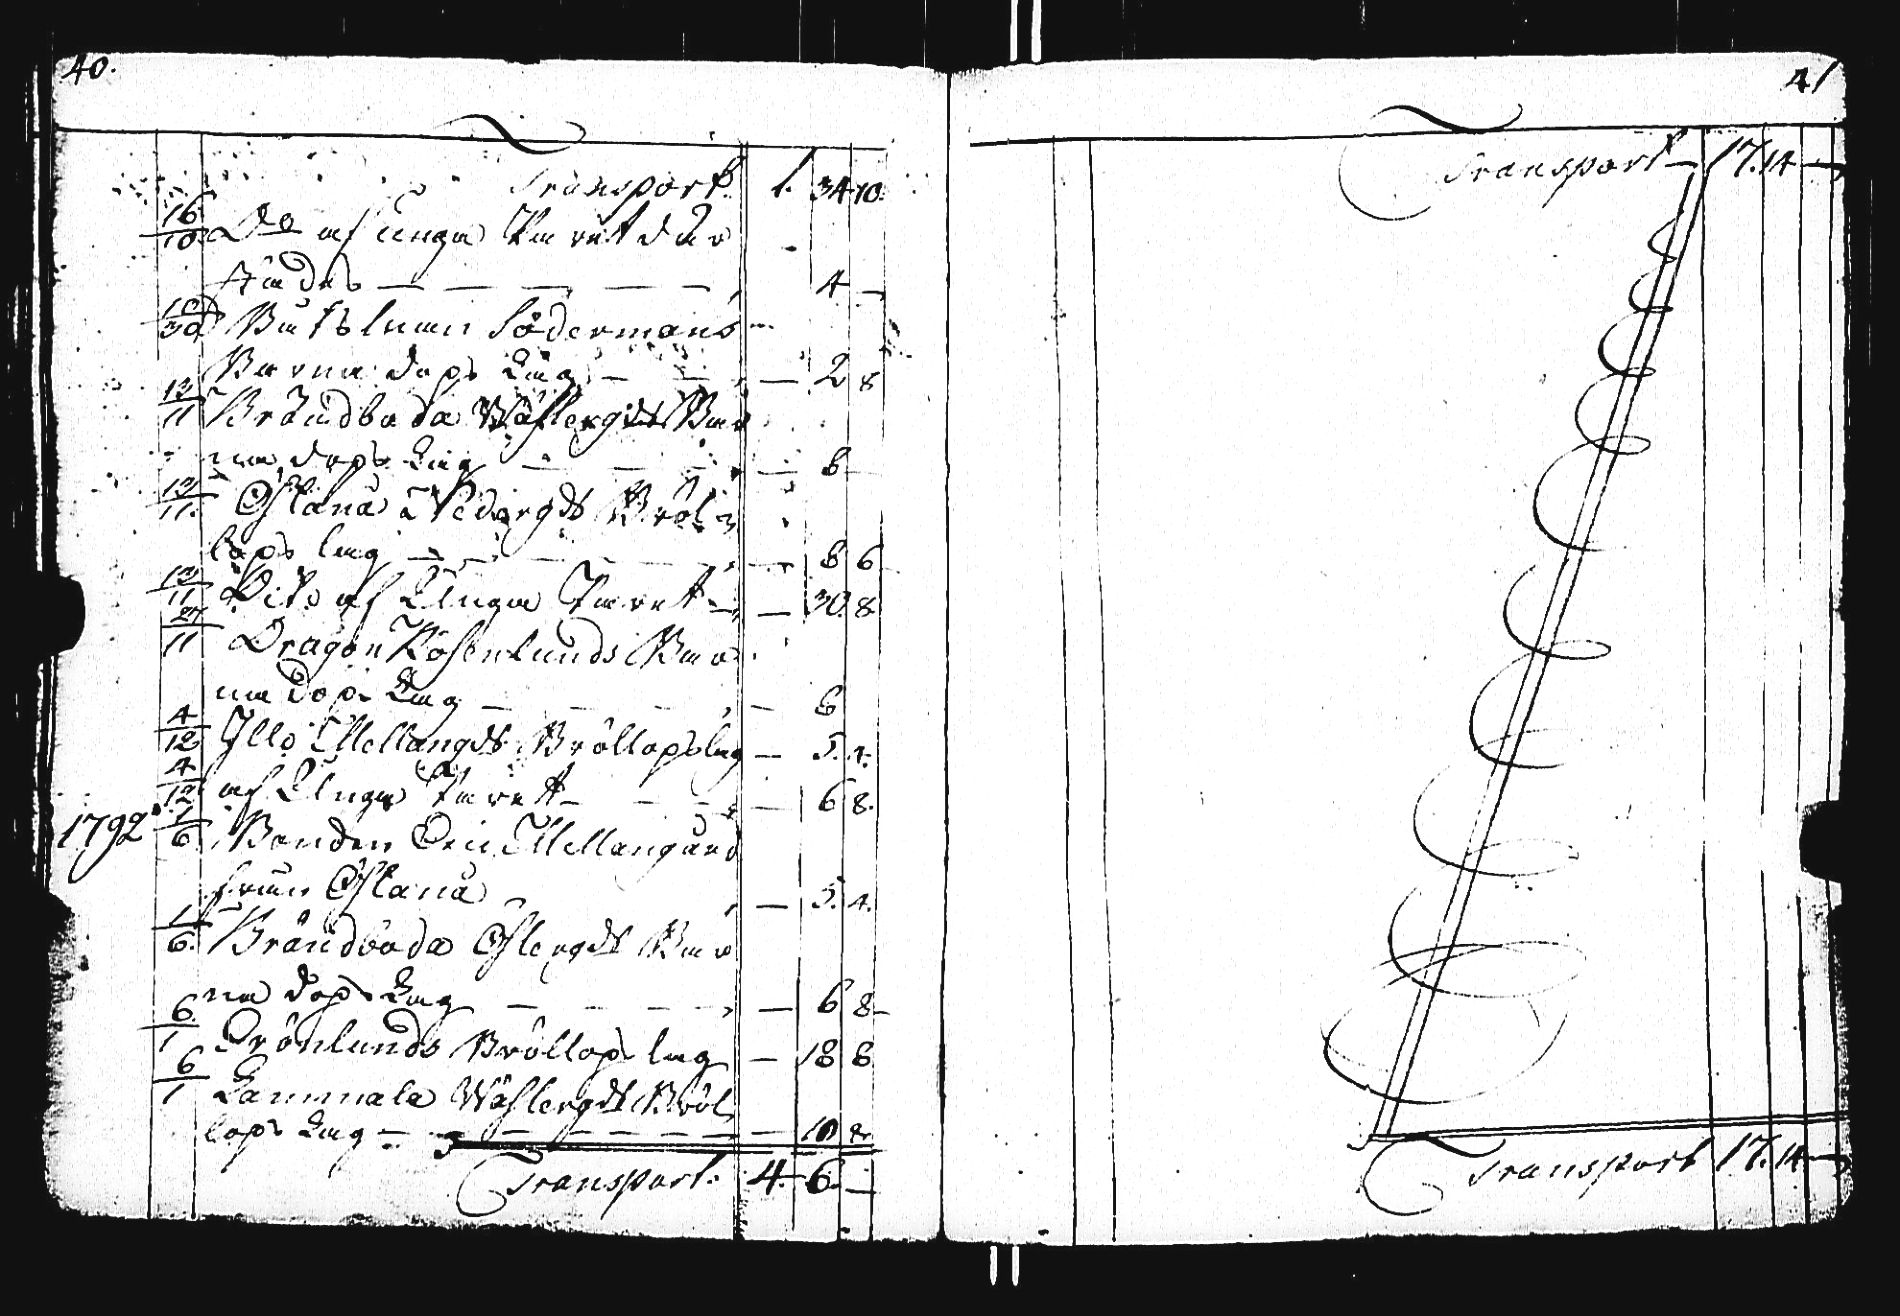 40.
Transport. 1. 34 10.
16/10 Do af unga Paret dår
städes — — — — 4 —
16/30 Båtsman Södermans
Barna dops Lag — — — 2 8
13/11 Brändboda Wästergds Bar
na dops Lag — — — — 8
13/11. Östanå Nedergds Bröl
lops lag — — — — 8 6
13/11 Dito af Unga Paret — — 30. 8
27/11 Dragon Rosenlunds Bar
na dops Lag — — — — 6
4/12 Mellangds Bröllops lag — 5. 4.
4/12 af Unga Parett — — — — 6 8.
1792 1/6 Bonden Eric Mellangård
från Östanå — 5. 4.
1/6. Brändboda Östergds Bar
na dops Lag — — — — 6 8
6./1 Grönlunds Bröllops lag — 18 8
6/1 Gammala Wästergds Bröl
lops Lag — — — — 10 8
Transport: 4. 6. —
41
Transport — 17. 14 —
Transport 17. 14 —